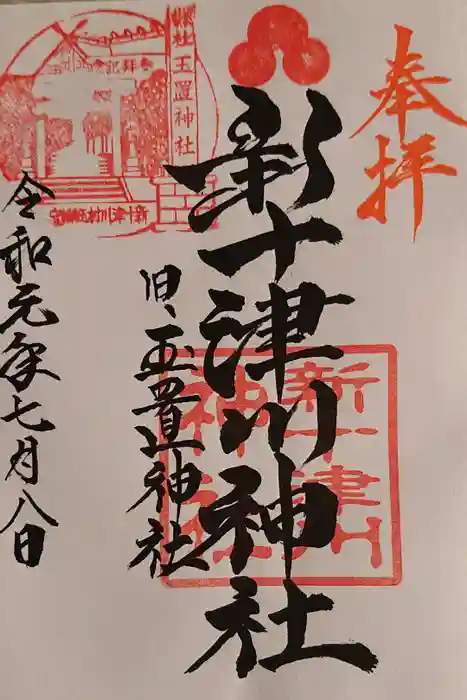 奉拝
新十津川神社
旧、玉置神社
令和元年七月八日
縣社玉置神社
参拝記念
新十津川
神社